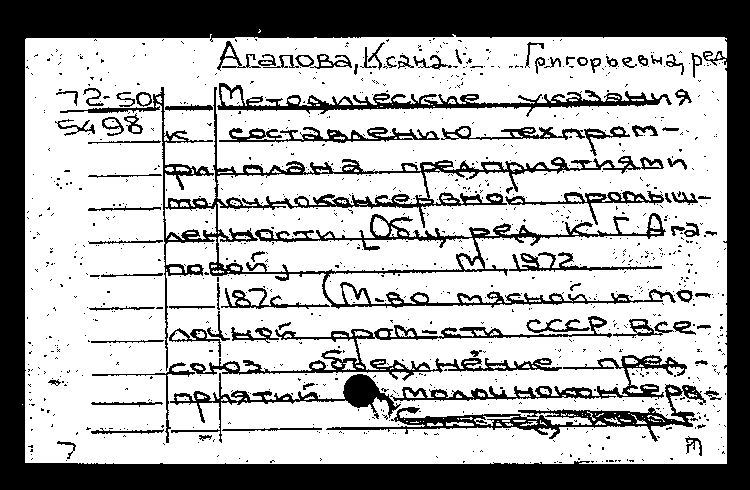 Агапова, Ксана Григорьевна, ред
72-50к Методические указания
5498 к составлению техпром-
финплана предприятиями
молочноконсервной промыш-
ленности. [Общ. ред. К. Г. Ага-
повой]. М., 1972.
187с. (М-во мясной и мо-
лочной пром-сти СССР. Все-
союз. объединение пред-
приятий молочноконсерв-
См. след. карт.
7